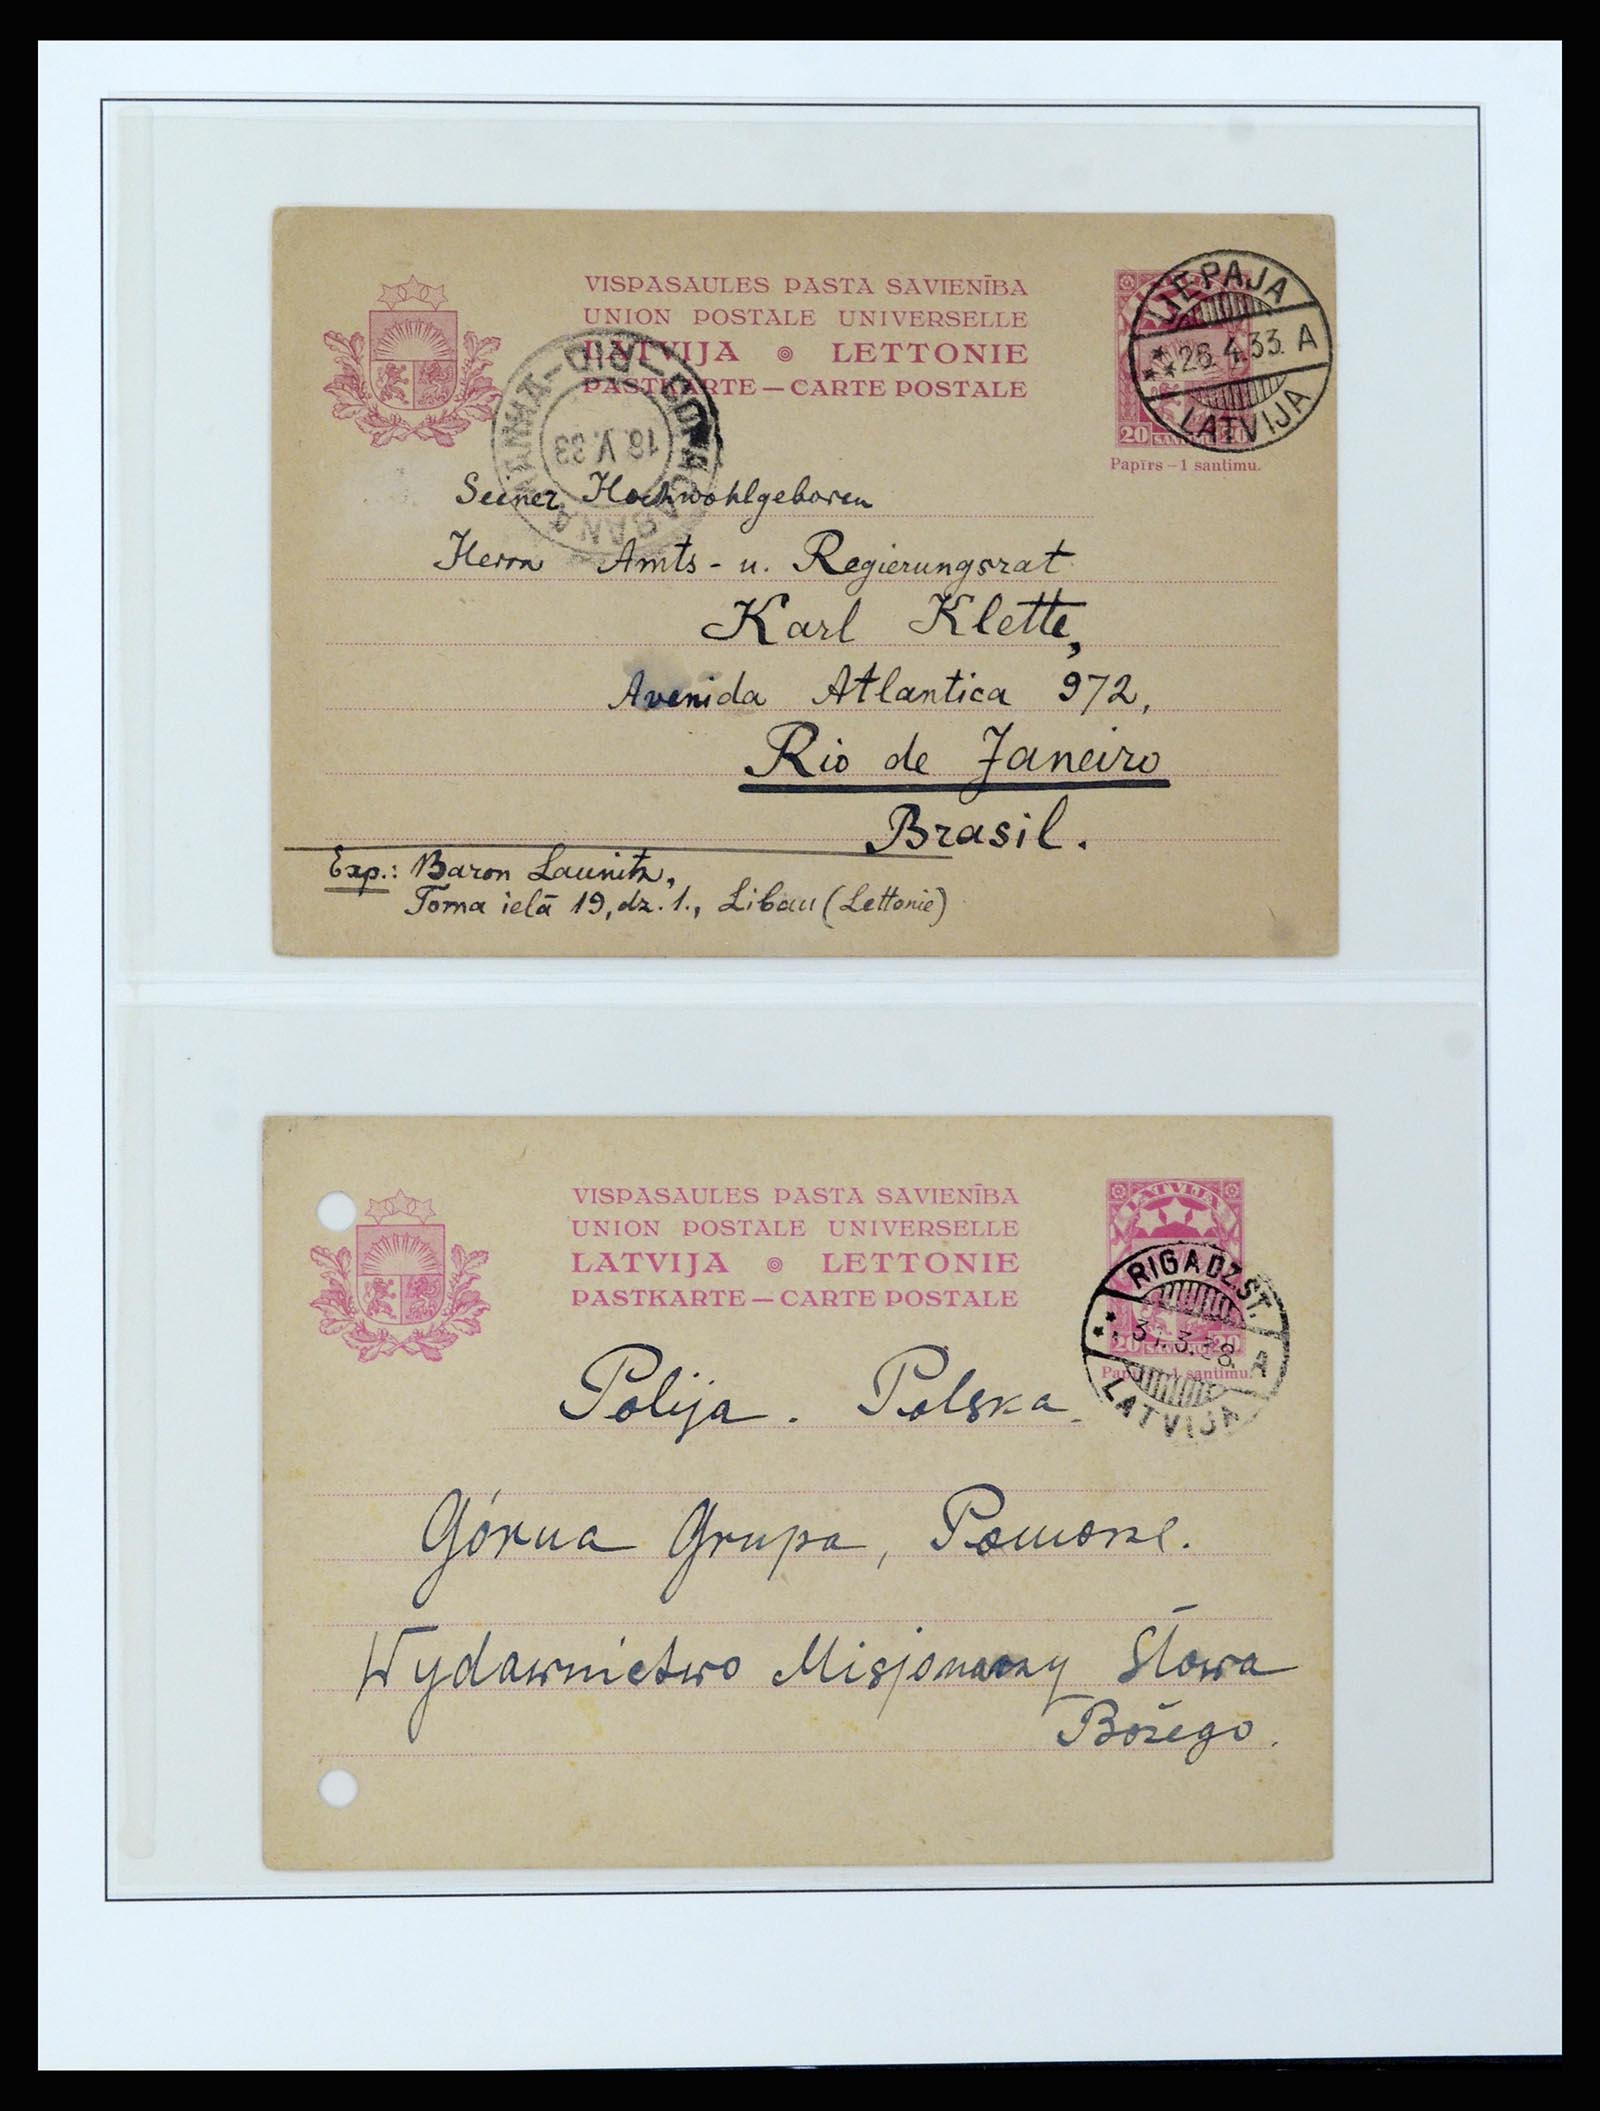 VISPASAULES PASTA SAVIENĪBA
UNION POSTALE UNIVERSELLE
LATVIJA LETTONIE
PASTKARTE — CARTE POSTALE
LIEPAJA
26.4.33. A
LATVIJA
20 SANTIMU 20
Papīrs – 1 santimu.
COPACABANA
18.V.33
Seiner Hochwohlgeboren
Herrn Amts- u. Regierungsrat
Karl Klette,
Avenida Atlantica 972,
Rio de Janeiro
Brasil.
Exp.: Baron Launitz,
Toma ielā 19, dz. 1., Libau (Lettonie)
VISPASAULES PASTA SAVIENĪBA
UNION POSTALE UNIVERSELLE
LATVIJA LETTONIE
PASTKARTE — CARTE POSTALE
LATVIJA
RIGA DZ.ST.
A
LATVIJA
20 SANTIMU 20
Papīrs – 1 santimu.
Polija. Polska.
Górna Grupa, Pomorze.
Wydawnictwo Misjonarzy Słowa
Bożego.